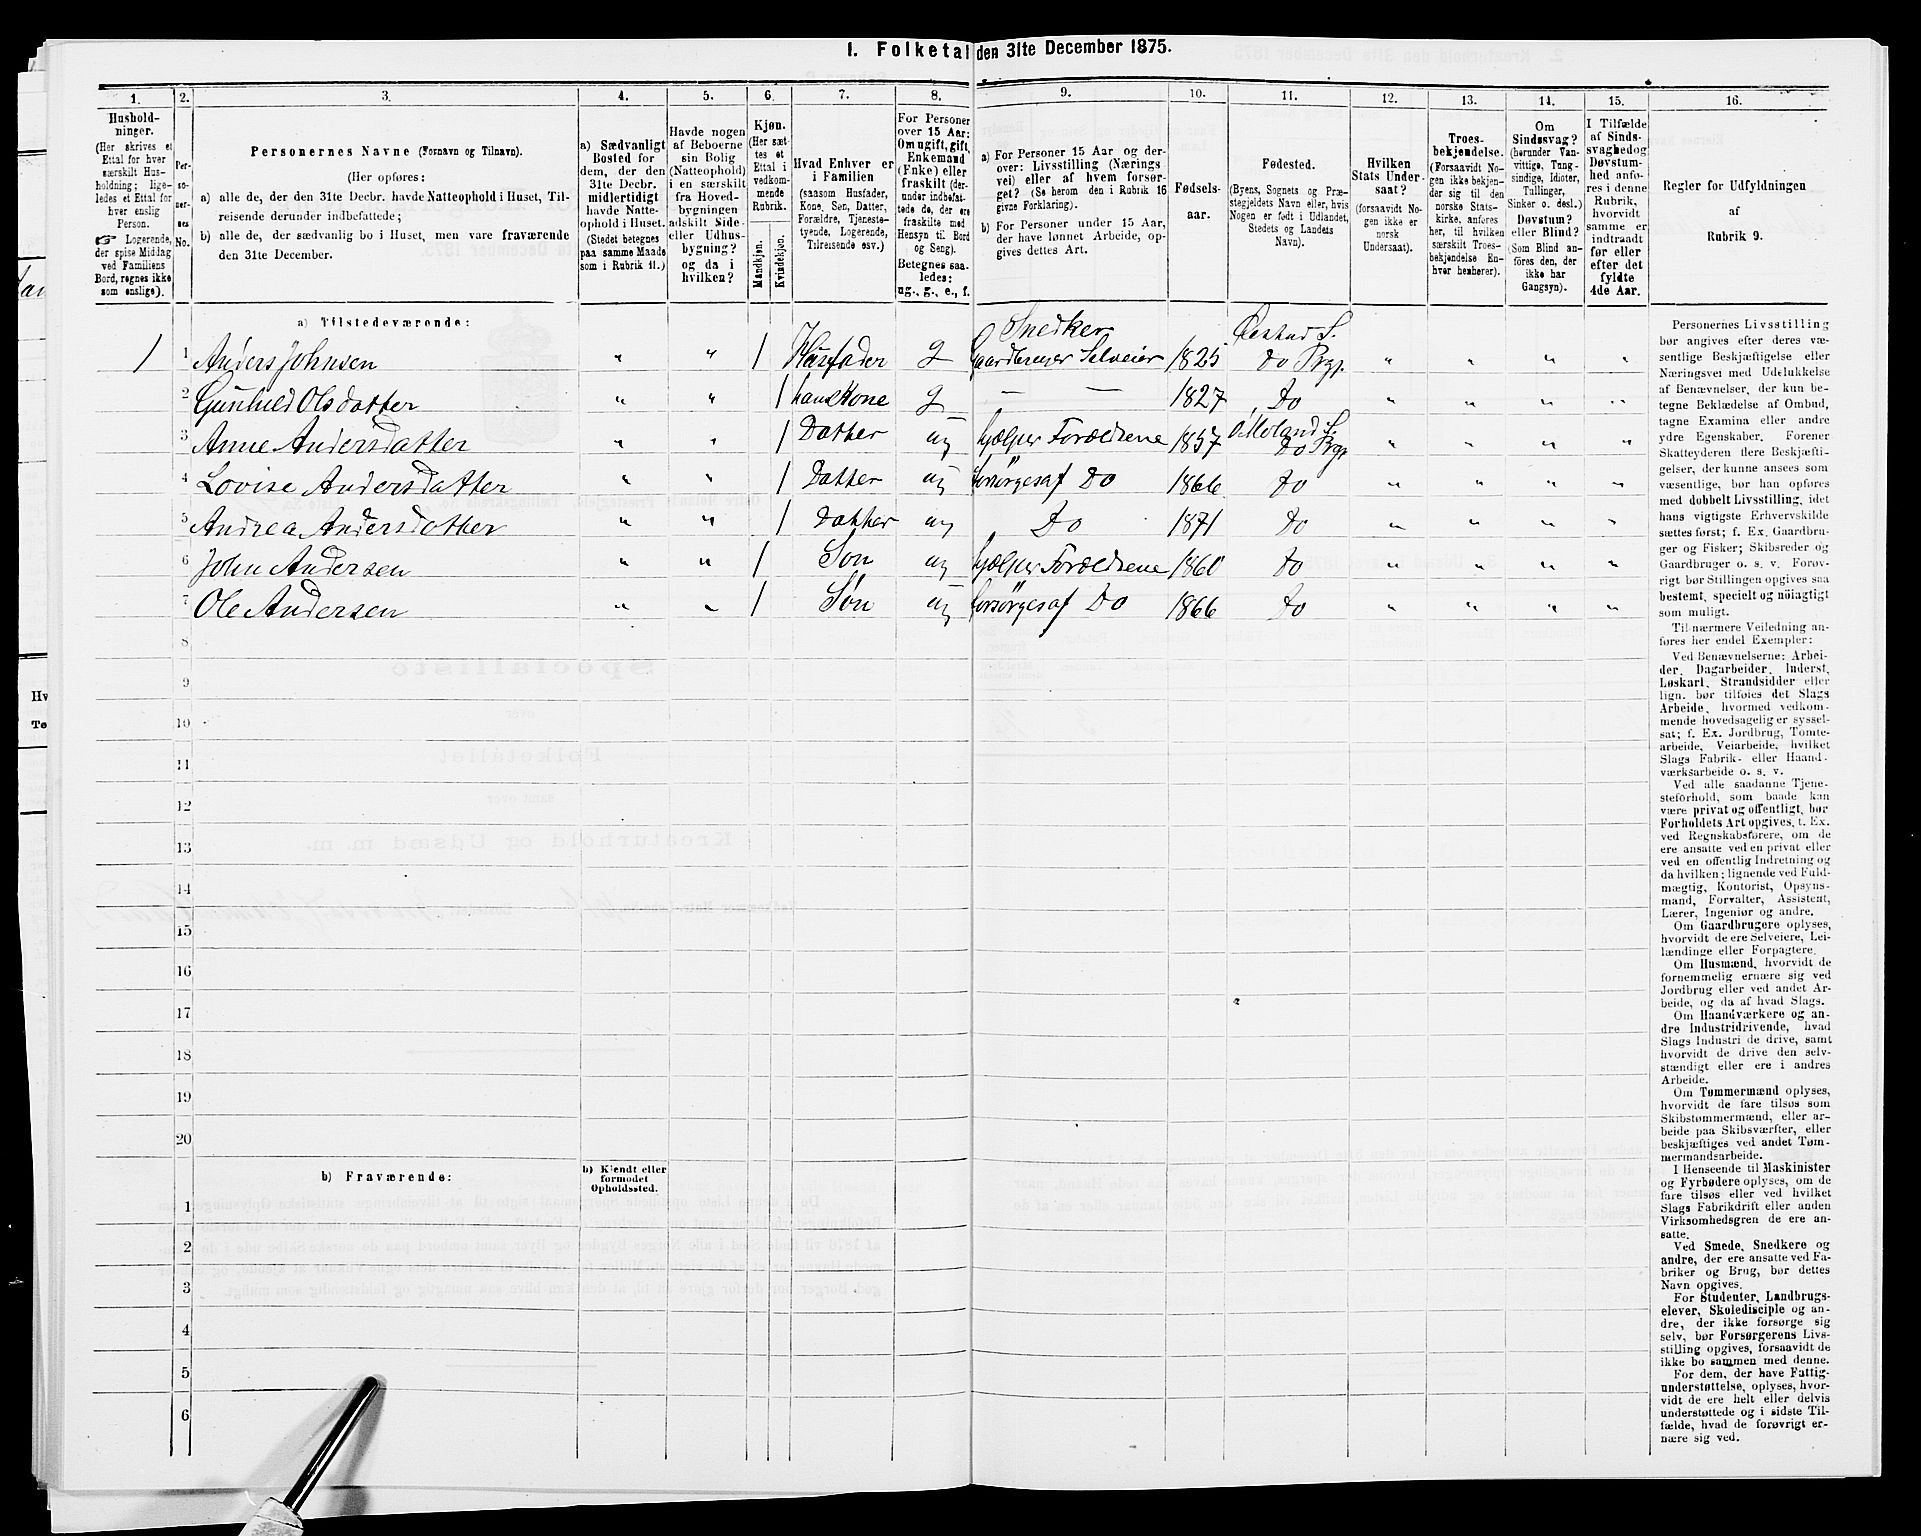 1. Folketal den 31te December 1875.
1. 2. 3. 4. 5. 6. 7. 8. 9. 10. 11. 12. 13. 14. 15. 16.
Hushold-
ninger.
(Her skrives et
Ettal for hver
særskilt Hus-
holdning; lige-
ledes et Ettal for
hver enslig
Person.
☞ Logerende,
der spise Middag
ved Familiens
Bord, regnes ikke
som enslige).
Per-
so-
ner-
nes
No.
Personernes Navne (Fornavn og Tilnavn).
(Her opføres:
a) alle de, der den 31te Decbr. havde Natteophold i Huset, Til-
reisende derunder indbefattede;
b) alle de, der sædvanlig bo i Huset, men vare fraværende
den 31te December.
a) Sædvanligt
Bosted for
dem, der den
31te Decbr.
midlertidigt
havde Natte-
ophold i Huset.
(Stedet betegnes
paa samme Maade
som i Rubrik 11.)
Havde nogen
af Beboerne
sin Bolig
(Natteophold)
i en særskilt
fra Hoved-
bygningen
adskilt Side-
eller Udhus-
bygning?
og da i
hvilken?
Kjøn.
(Her sæt-
tes et
Ettal i
vedkom-
mende
Rubrik.
Mandkjøn.
Kvindekjøn.
Hvad Enhver er
i Familien
(saasom Husfader,
Kone, Søn, Datter,
Forældre, Tjeneste-
tyende, Logerende,
Tilreisende osv.)
For Personer
over 15 Aar:
Om ugift, gift,
Enkemand
(Enke) eller
fraskilt (der-
under indbefat-
tede de, der ere
fraskilte med
Hensyn til Bord
og Seng).
Betegnes saa-
ledes:
ug., g., e., f.
a) For Personer 15 Aar og der-
over: Livsstilling (Nærings
vei) eller af hvem forsør-
get? (Se herom den i Rubrik 16
givne Forklaring).
b) For Personer under 15 Aar,
der have lønnet Arbeide, op-
gives dettes Art.
Fødsels-
aar.
Fødested.
(Byens, Sognets og Præ-
stegjeldets Navn eller, hvis
Nogen er født i Udlandet,
Stedets og Landets
Navn).
Hvilken
Stats Under-
saat?
(forsaavidt No-
gen ikke er
norsk
Undersaat).
Troes-
bekjendelse.
(Forsaavidt No-
gen ikke bekjen-
der sig til den
norske Stats-
kirke, anføres
her, til hvilken
særskilt Troes-
bekjendelse En-
hver henhører).
Om
Sindssvag?
(herunder Van-
vittige, Tung-
sindige, Idioter,
Tullinger,
Sinker o. desl.)
Døvstum?
eller Blind?
(Som Blind an-
føres den, der
ikke har
Gangsyn).
I Tilfælde
af Sinds-
svaghed og
Døvstum-
hed anfø-
res i denne
Rubrik,
hvorvidt
samme er
indtraadt
før eller
efter det
fyldte
4de Aar.
Regler for Udfyldningen
af
Rubrik 9.
a) Tilstedeværende:
1 1 Anders Johnsen " " 1 Husfader g Snedker Gaardbruger Selveier 1825 Øiestad S. Do Prgj. " " " "
2 Gunhild Olsdatter " " 1 hans Kone g — — 1827 Do " " " "
3 Anne Andersdatter " " 1 Datter ug hjælper Forældrene 1857 O. Moland S. Do Prgj " " " "
4 Lovise Andersdatter " " 1 Datter ug forsørges af Do 1866 Do " " " "
5 Andrea Andersdatter " " 1 Datter ug Do 1871 Do " " " "
6 John Andersen " " 1 Søn ug hjælper Forældrene 1860 Do " " " "
7 Ole Andersen " " 1 Søn ug forsørges af Do 1866 Do " " " "
8
9
10
11
12
13
14
15
16
17
18
19
20
b) Fraværende:
b) Kjendt eller
formodet
Opholdssted.
1
2
3
4
5
6
Personernes Livsstilling
bør angives efter deres væ-
sentlige Beskjæftigelse eller
Næringsvei med Udelukkelse
af Benævnelser, der kun be-
tegne Beklædelse af Ombud,
tagne Examina eller andre
ydre Egenskaber. Forener
Skatteyderen flere Beskjæfti-
gelser, der kunne ansees som
væsentlige, bør han opføres
med dobbelt Livsstilling, idet
hans vigtigste Erhvervskilde
sættes først; f. Ex. Gaardbru-
ger og Fisker; Skibsreder og
Gaardbruger o. s. v. Forøv-
rigt bør Stillingen opgives saa
bestemt, specielt og nøiagtigt
som muligt.
Til nærmere Veiledning an-
føres her endel Exempler:
Ved Benævnelserne: Arbei-
der, Dagarbeider, Inderst,
Løskarl, Strandsidder eller
lign. bør tilføies det Slags
Arbeide, hvormed vedkom-
mende hovedsagelig er syssel-
sat; f. Ex. Jordbrug, Tomte-
arbeide, Veiarbeide, hvilket
Slags Fabrik- eller Haand-
værksarbeide o. s. v.
Ved alle saadanne Tjene-
steforhold, som baade kan
være privat og offentligt, bør
Forholdets Art opgives, t. Ex.
ved Regnskabsførere, om de
ere ansatte ved en privat eller
ved en offentlig Indretning og
da hvilken; lignende ved Fuld-
mægtig, Kontorist, Opsyns-
mand, Forvalter, Assistent,
Lærer, Ingeniør og andre.
Om Gaardbrugere oplyses,
hvorvidt de ere Selveiere, Lei-
lændinge eller Forpagtere.
Om Husmænd, hvorvidt de
fornemmelig ernære sig ved
Jordbrug eller ved andet Ar-
beide, og da af hvad Slags.
Om Haandværkere og an-
dre Industridrivende, hvad
Slags Industri de drive, samt
hvorvidt de drive den selv-
stændigt eller ere i andres
Arbeide.
Om Tømmermænd oplyses,
hvorvidt de fare tilsøs som
Skibstømmermænd, eller ar-
beide paa Skibsværfter, eller
beskjæftiges ved andet Tøm-
mermandsarbeide.
I Henseende til Maskinister
og Fyrbødere oplyses, om de
fare tilsøs eller ved hvilket
Slags Fabrikdrift eller anden
Virksomhedsgren de ere an-
satte.
Ved Smede, Snedkere og
andre, der ere ansatte ved Fa-
briker og Brug, bør dettes
Navn opgives.
For Studenter, Landbrugs-
elever, Skoledisciple og an-
dre, der ikke forsørge sig
selv, bør Forsørgerens Livs-
stilling opgives, forsaavidt de
ikke bo sammen med denne.
For dem, der have Fattig-
understøttelse, oplyses, hvor-
vidt de ere helt eller delvis
understøttede og i sidste Til-
fælde, hvad de forøvrigt er-
nære sig ved.